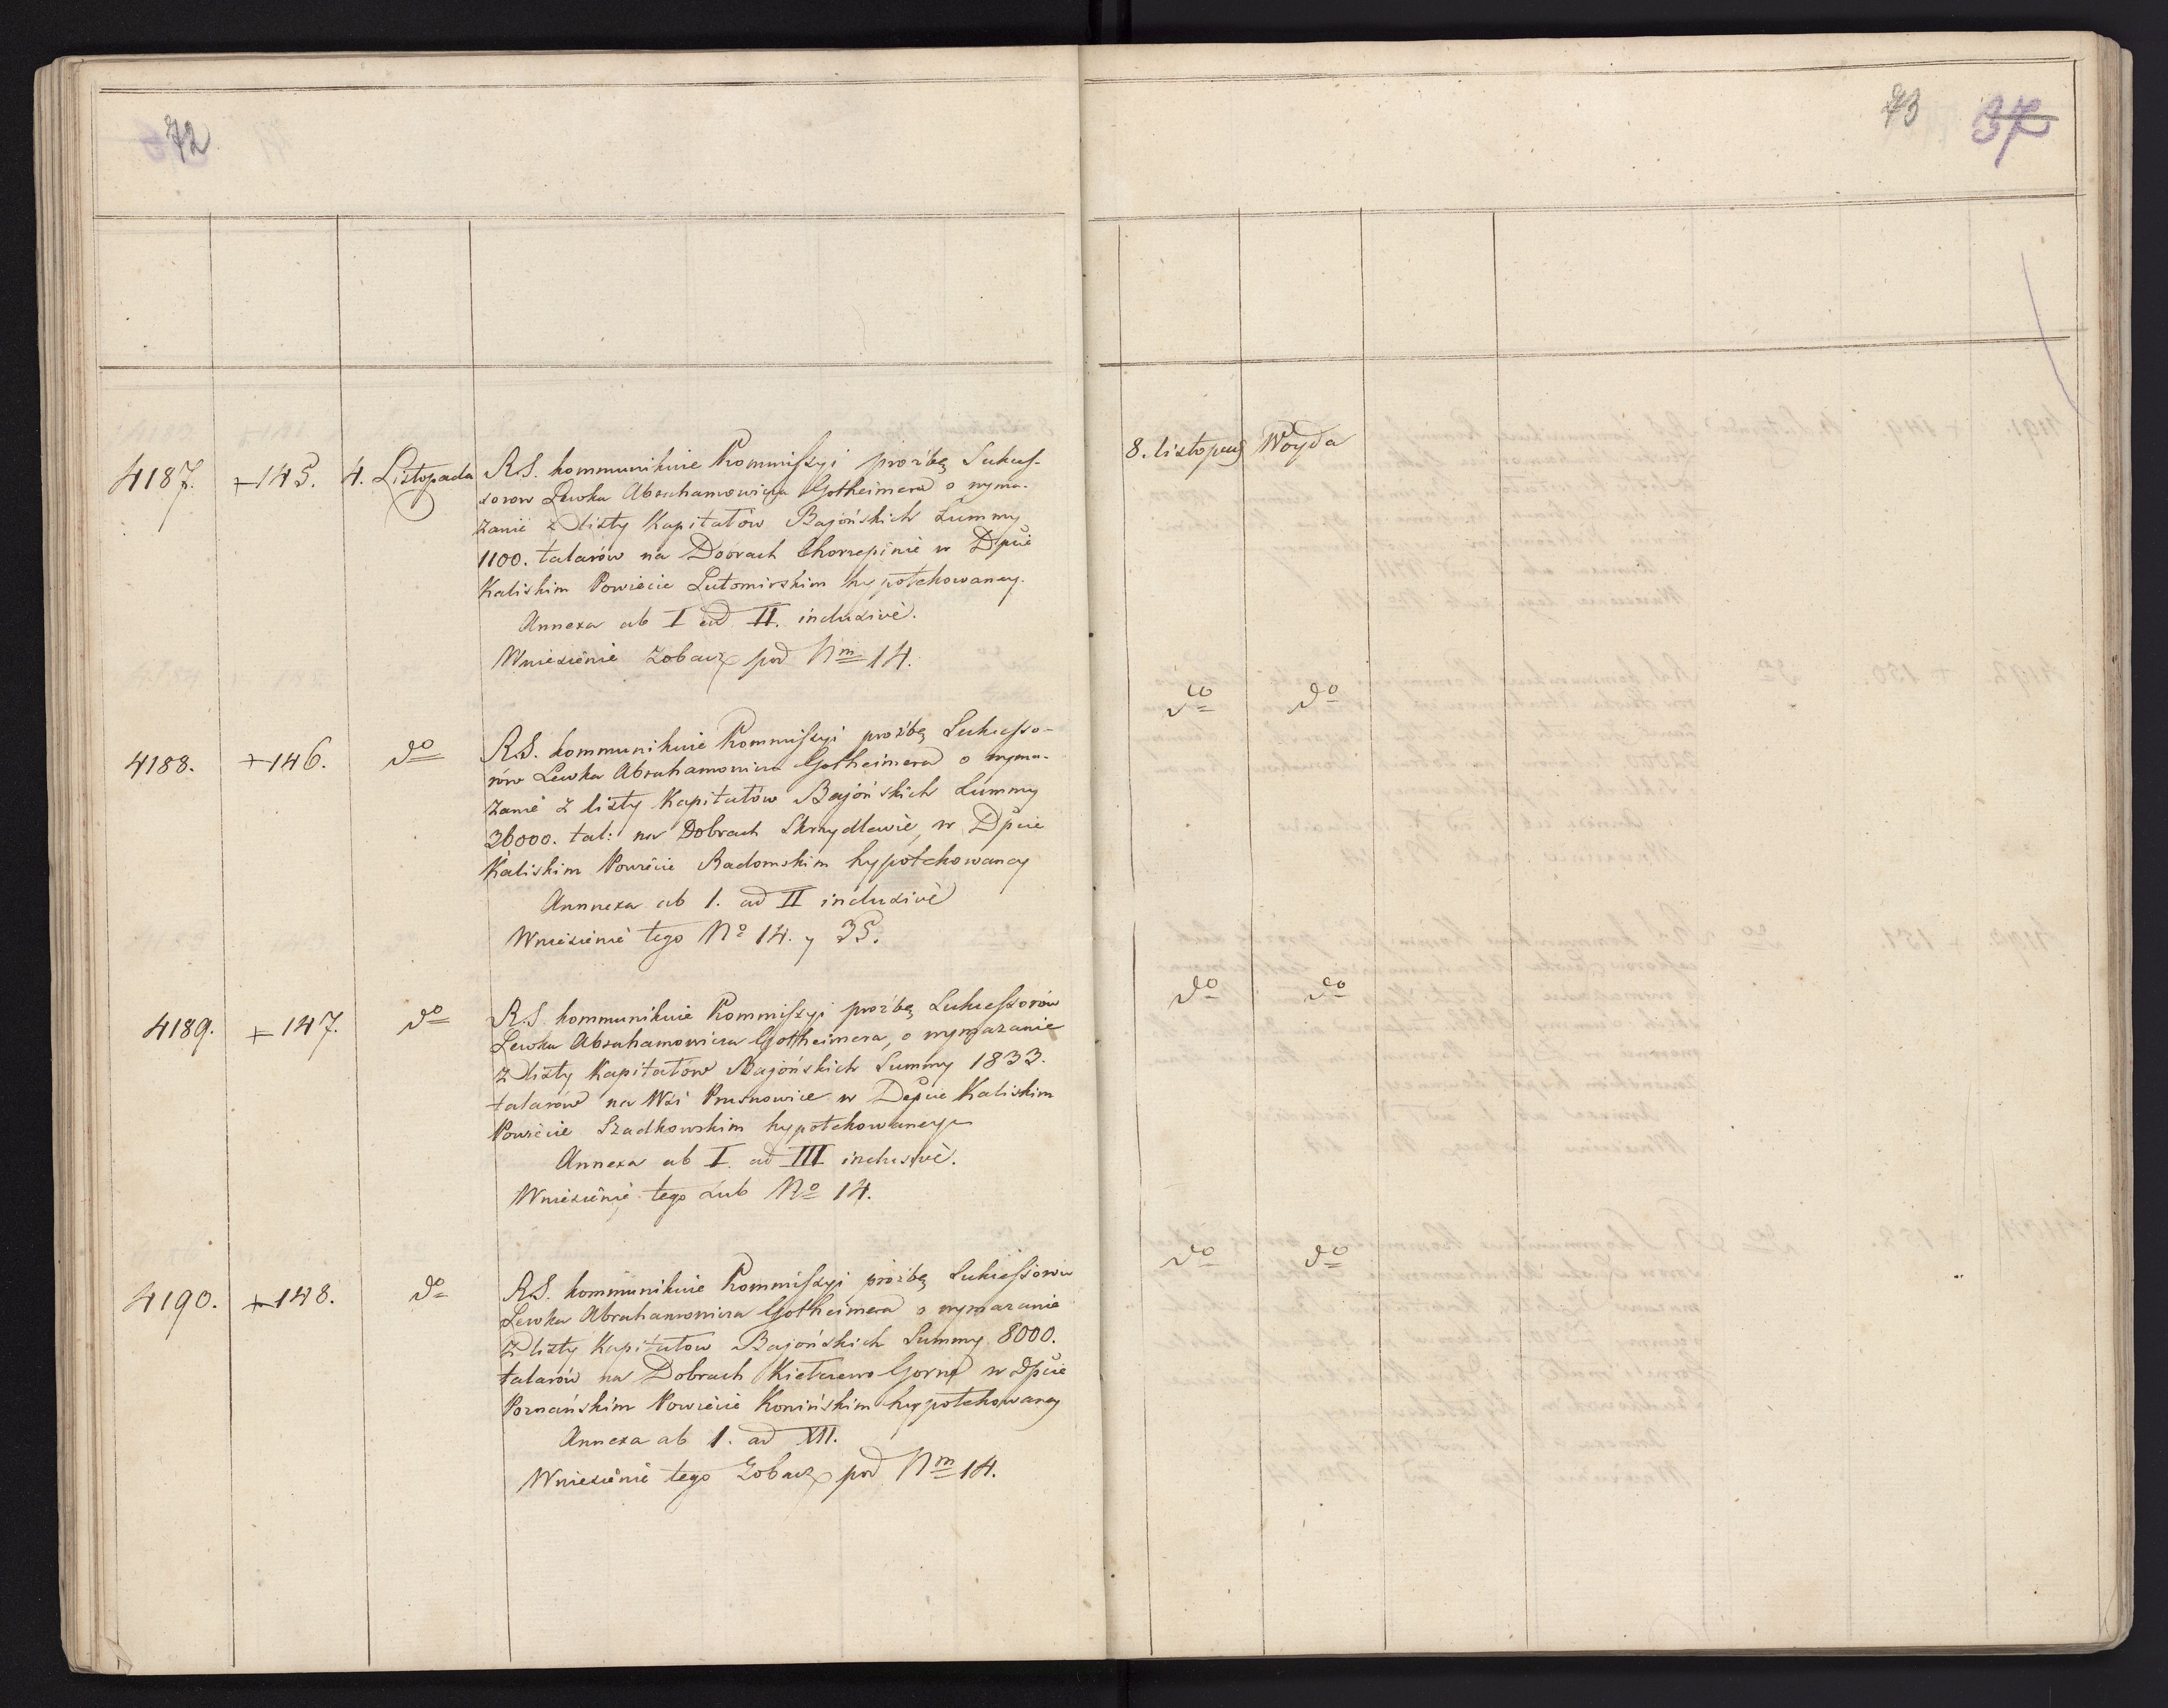 72
4187. +145. 4. Listopada R.S. kommunikuie Kommissyi prozbę Sukces-
sorow Lewka Abrahamowicza Gotheimera o wyma-
zanie z listy Kapitałów Bajońskich Summy
1100. talarów na Dobrach Chorzepinie w Dpcie
Kaliskim Powiecie Lutomirskim hypotekowaney.
Annexa ab I ad II. inclusivè.
Wniesienie Zobacz pod Nm 14.
4188. +146. do R.S. kommunikuie Kommissyi prozbę Sukcesso-
rów Lewka Abrahamowicza Gotheimera o wyma-
zanie z listy Kapitałów Bajońskich Summy
36000. tal: na Dobrach Skrzydlewie, w Dpcie
Kaliskim Powiecie Radomskim hypotekowaney
Annnexa ab 1. ad II inclusivè
Wniesienie tego No 14. y 35.
4189. + 147. do R.S. kommunikuie Kommissyi prozbę Sukcessorów
Lewka Abrahamowicza Gottheimera, o wymazanie
z listy Kapitałów Bajońskich Summy 1833.
talarów na Wsi Prusnowice w Depcie Kaliskim
Powiecie Szadkowskim hypotekowaney
Annexa ab I. ad III inclusivè.
Wniesienie tego sub No 14.
4190. +148. do R.S. kommunikuie Kommissyi prozbę Sukcessorow
Lewka Abrahamowicza Gottheimera o wymazanie
z listy Kapitałow Bajońskich Summy 8000.
talarów na Dobrach Kiełczewo Gorne w Dpcie
Poznańskim Powiecie Konińskim hypotekowaney
Annexa ab 1. ad XII.
Wniesienie tego Zobacz pod Nm 14.
73 37
8. listopad Woyda
do do
do do
do do